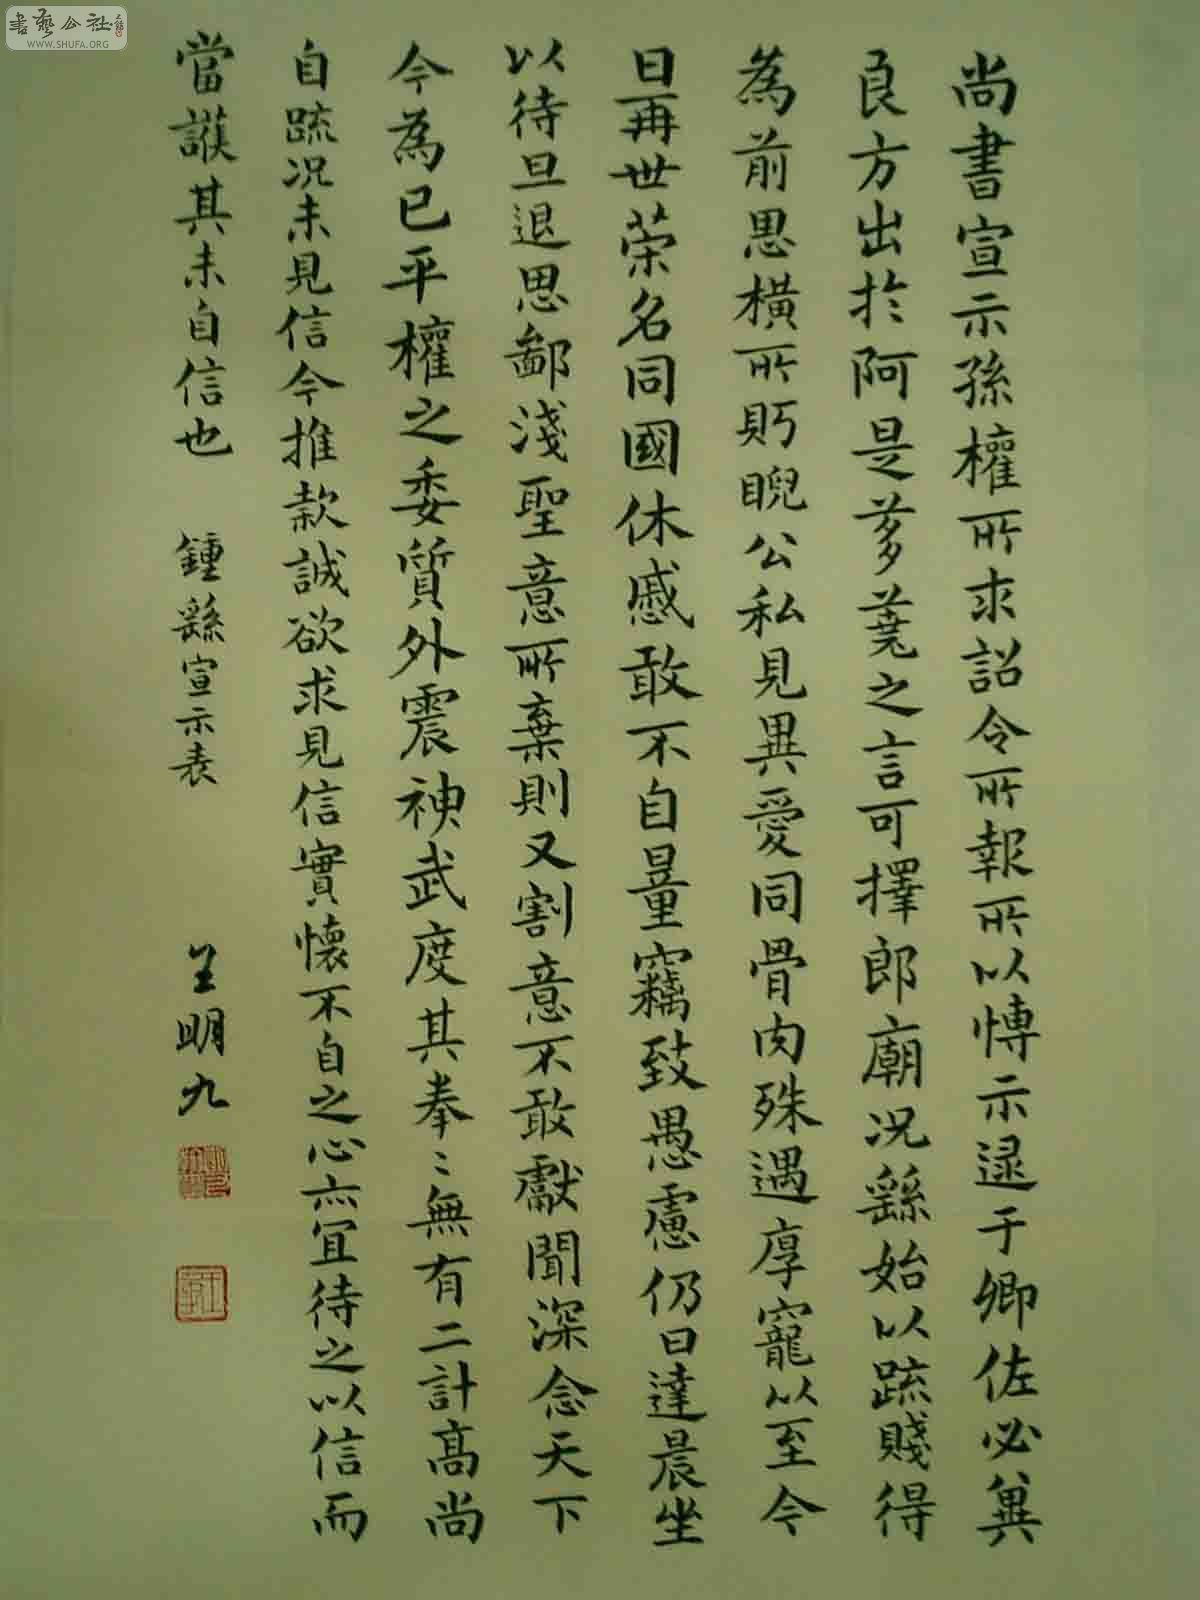 書藝公社
WWW.SHUFA.ORG
尚書宣示孫權所求詔令所報所以博示逯于卿佐必冀
良方出於阿是芻蕘之言可擇郎廟況繇始以疏賤得
為前恩橫所眄睨公私見異愛同骨肉殊遇厚寵以至今
日再世荣名同國休慼敢不自量竊致愚慮仍日達晨坐
以待旦退思鄙淺聖意所棄則又割意不敢獻聞深念天下
今為已平權之委質外震神武度其拳〻無有二計高尚
自疏况未見信今推款誠欲求見信實懷不自之心亦宜待之以信而
當護其未自信也 鍾繇宣示表 王明九